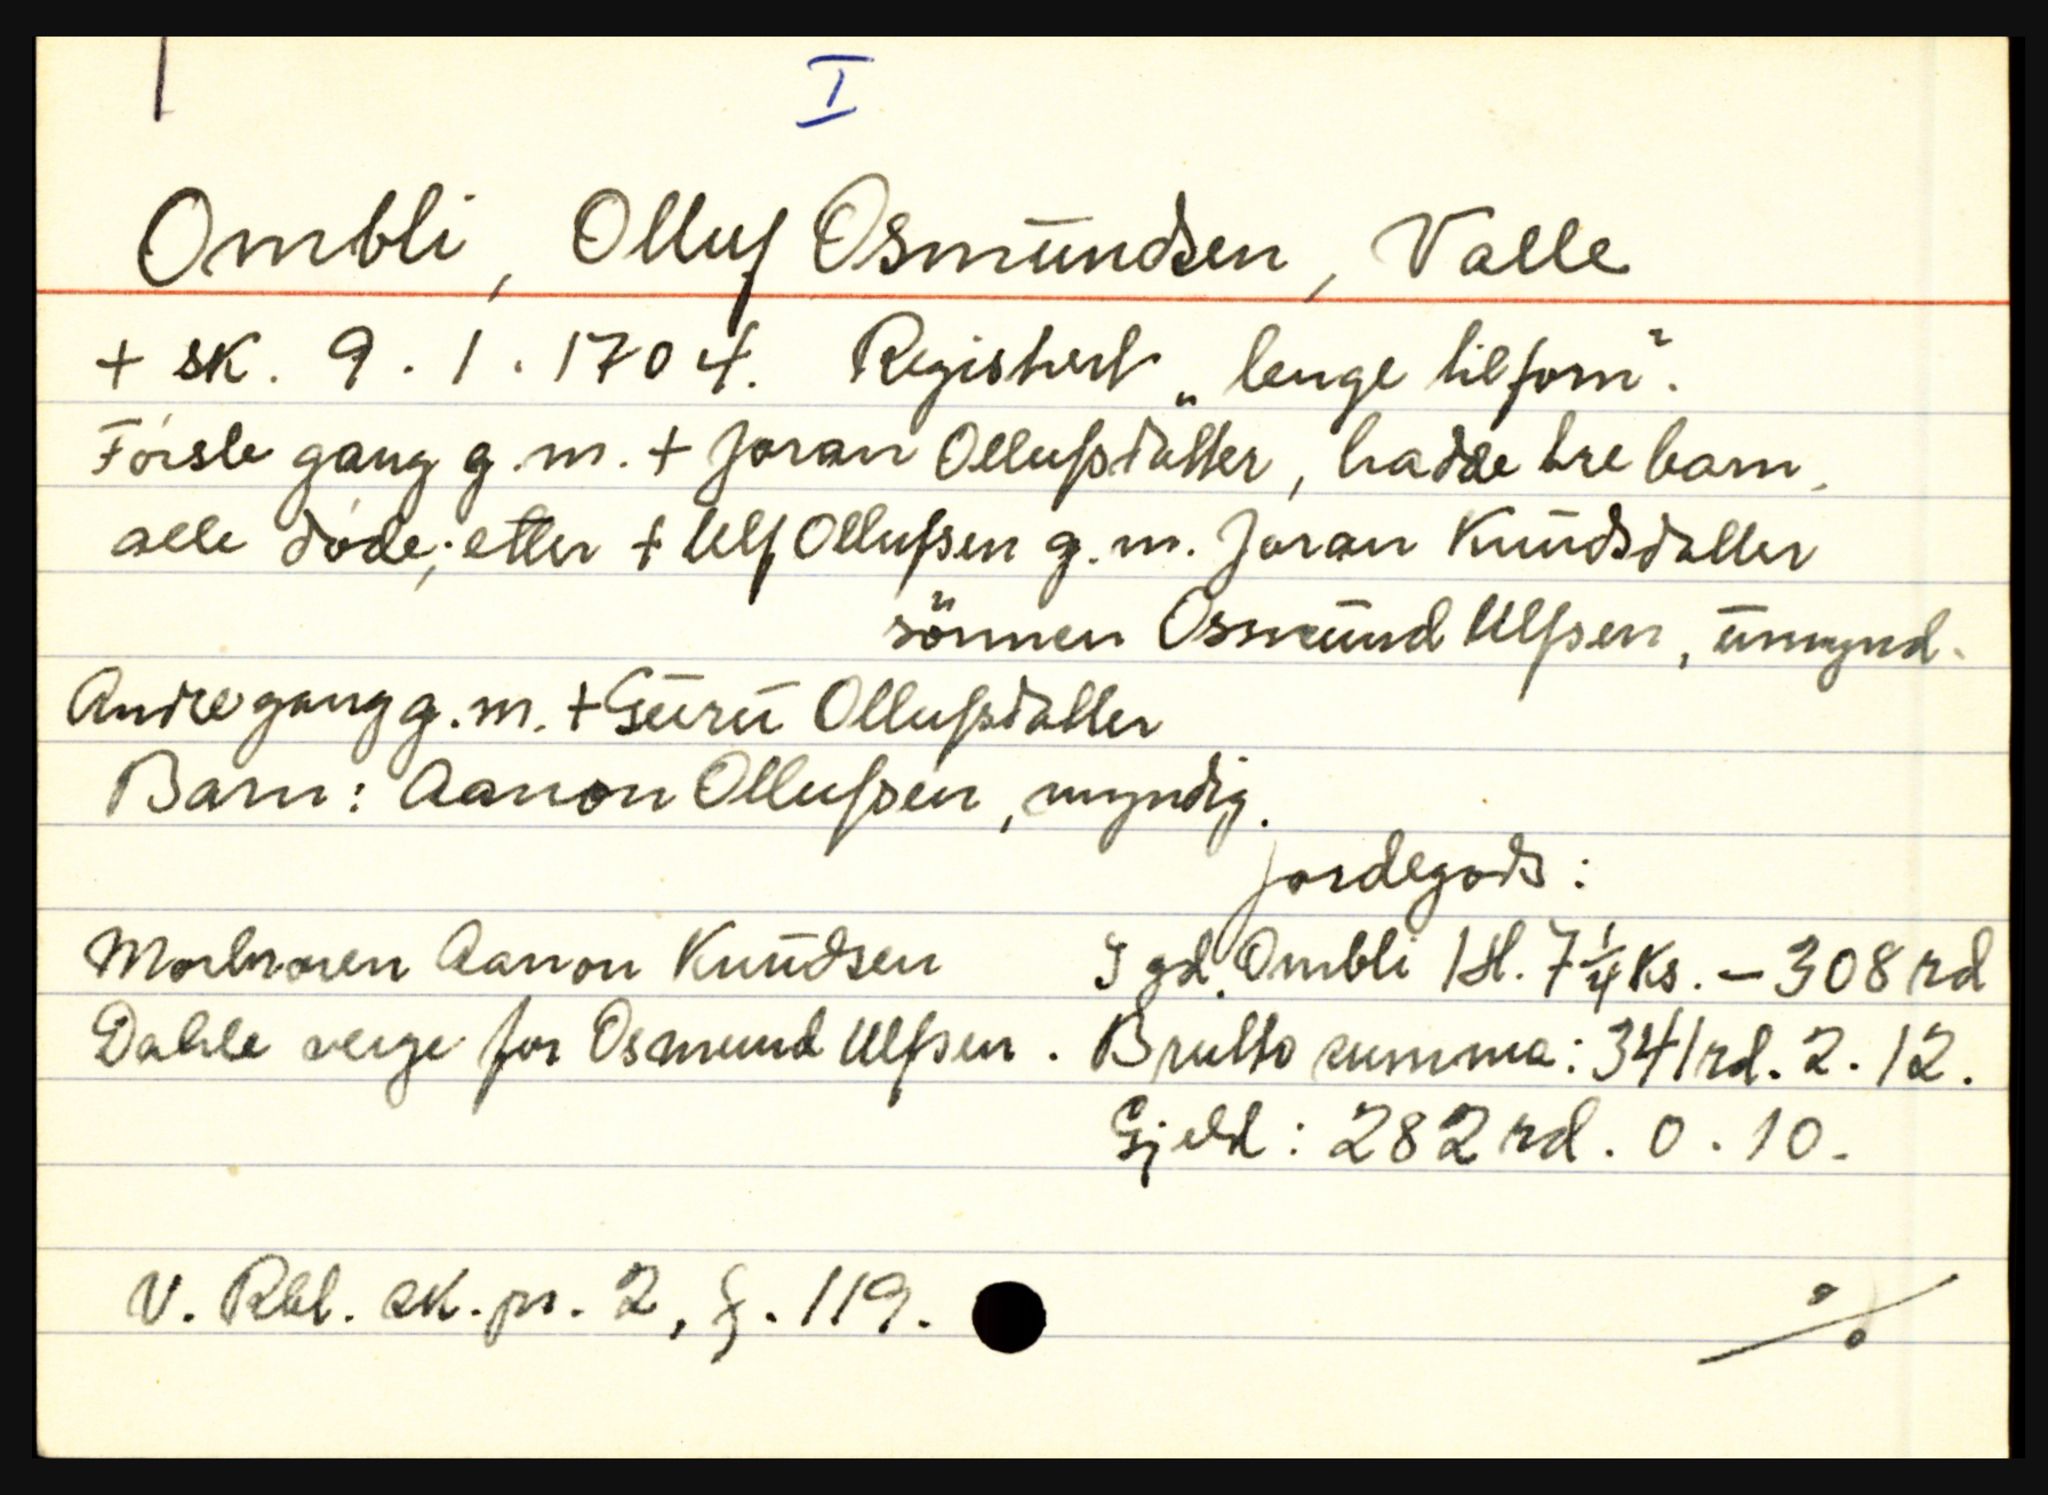 I
Ombli, Olluf Osmundsen, Valle
+ sk. 9.1.1704. Registrert „lenge tilforn".
Första gang g.m. + Joran Ollufsdatter, hadde tre barn,
alle döde; etter + Ulf Ollufsen g.m. Joran Knudsdatter
sönnen Osmund Ulfsen, umynd.
Andre gang g.m. + Guru Ollufsdatter
Barn: Aanon Ollufsen, myndig.
Jordegods:
Morbroren Aanon Knudsen
Dahle verge for Osmund Ulfsen.
I gd. Ombli 1 hl. 7 1/4 ks. – 308 rd
Brutto summa: 341 rd. 2. 12.
Gjeld: 282 rd. 0. 10.
V. Rbl. sk. pr. 2, f. 119.
%